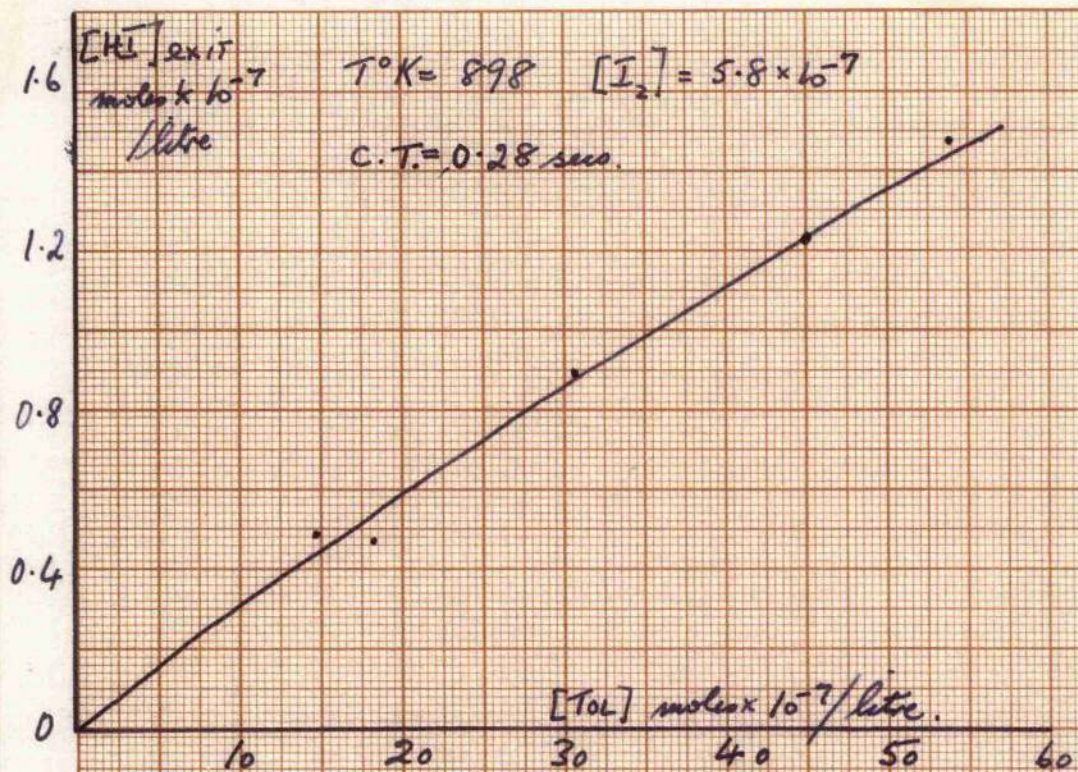 [HI] exit
moles x 10⁻⁷
/litre
T°K = 898 [I₂] = 5.8 x 10⁻⁷
C.T. = 0.28 secs.
1.6
1.2
0.8
0.4
0
[TOL] moles x 10⁻⁷/litre.
10 20 30 40 50 60